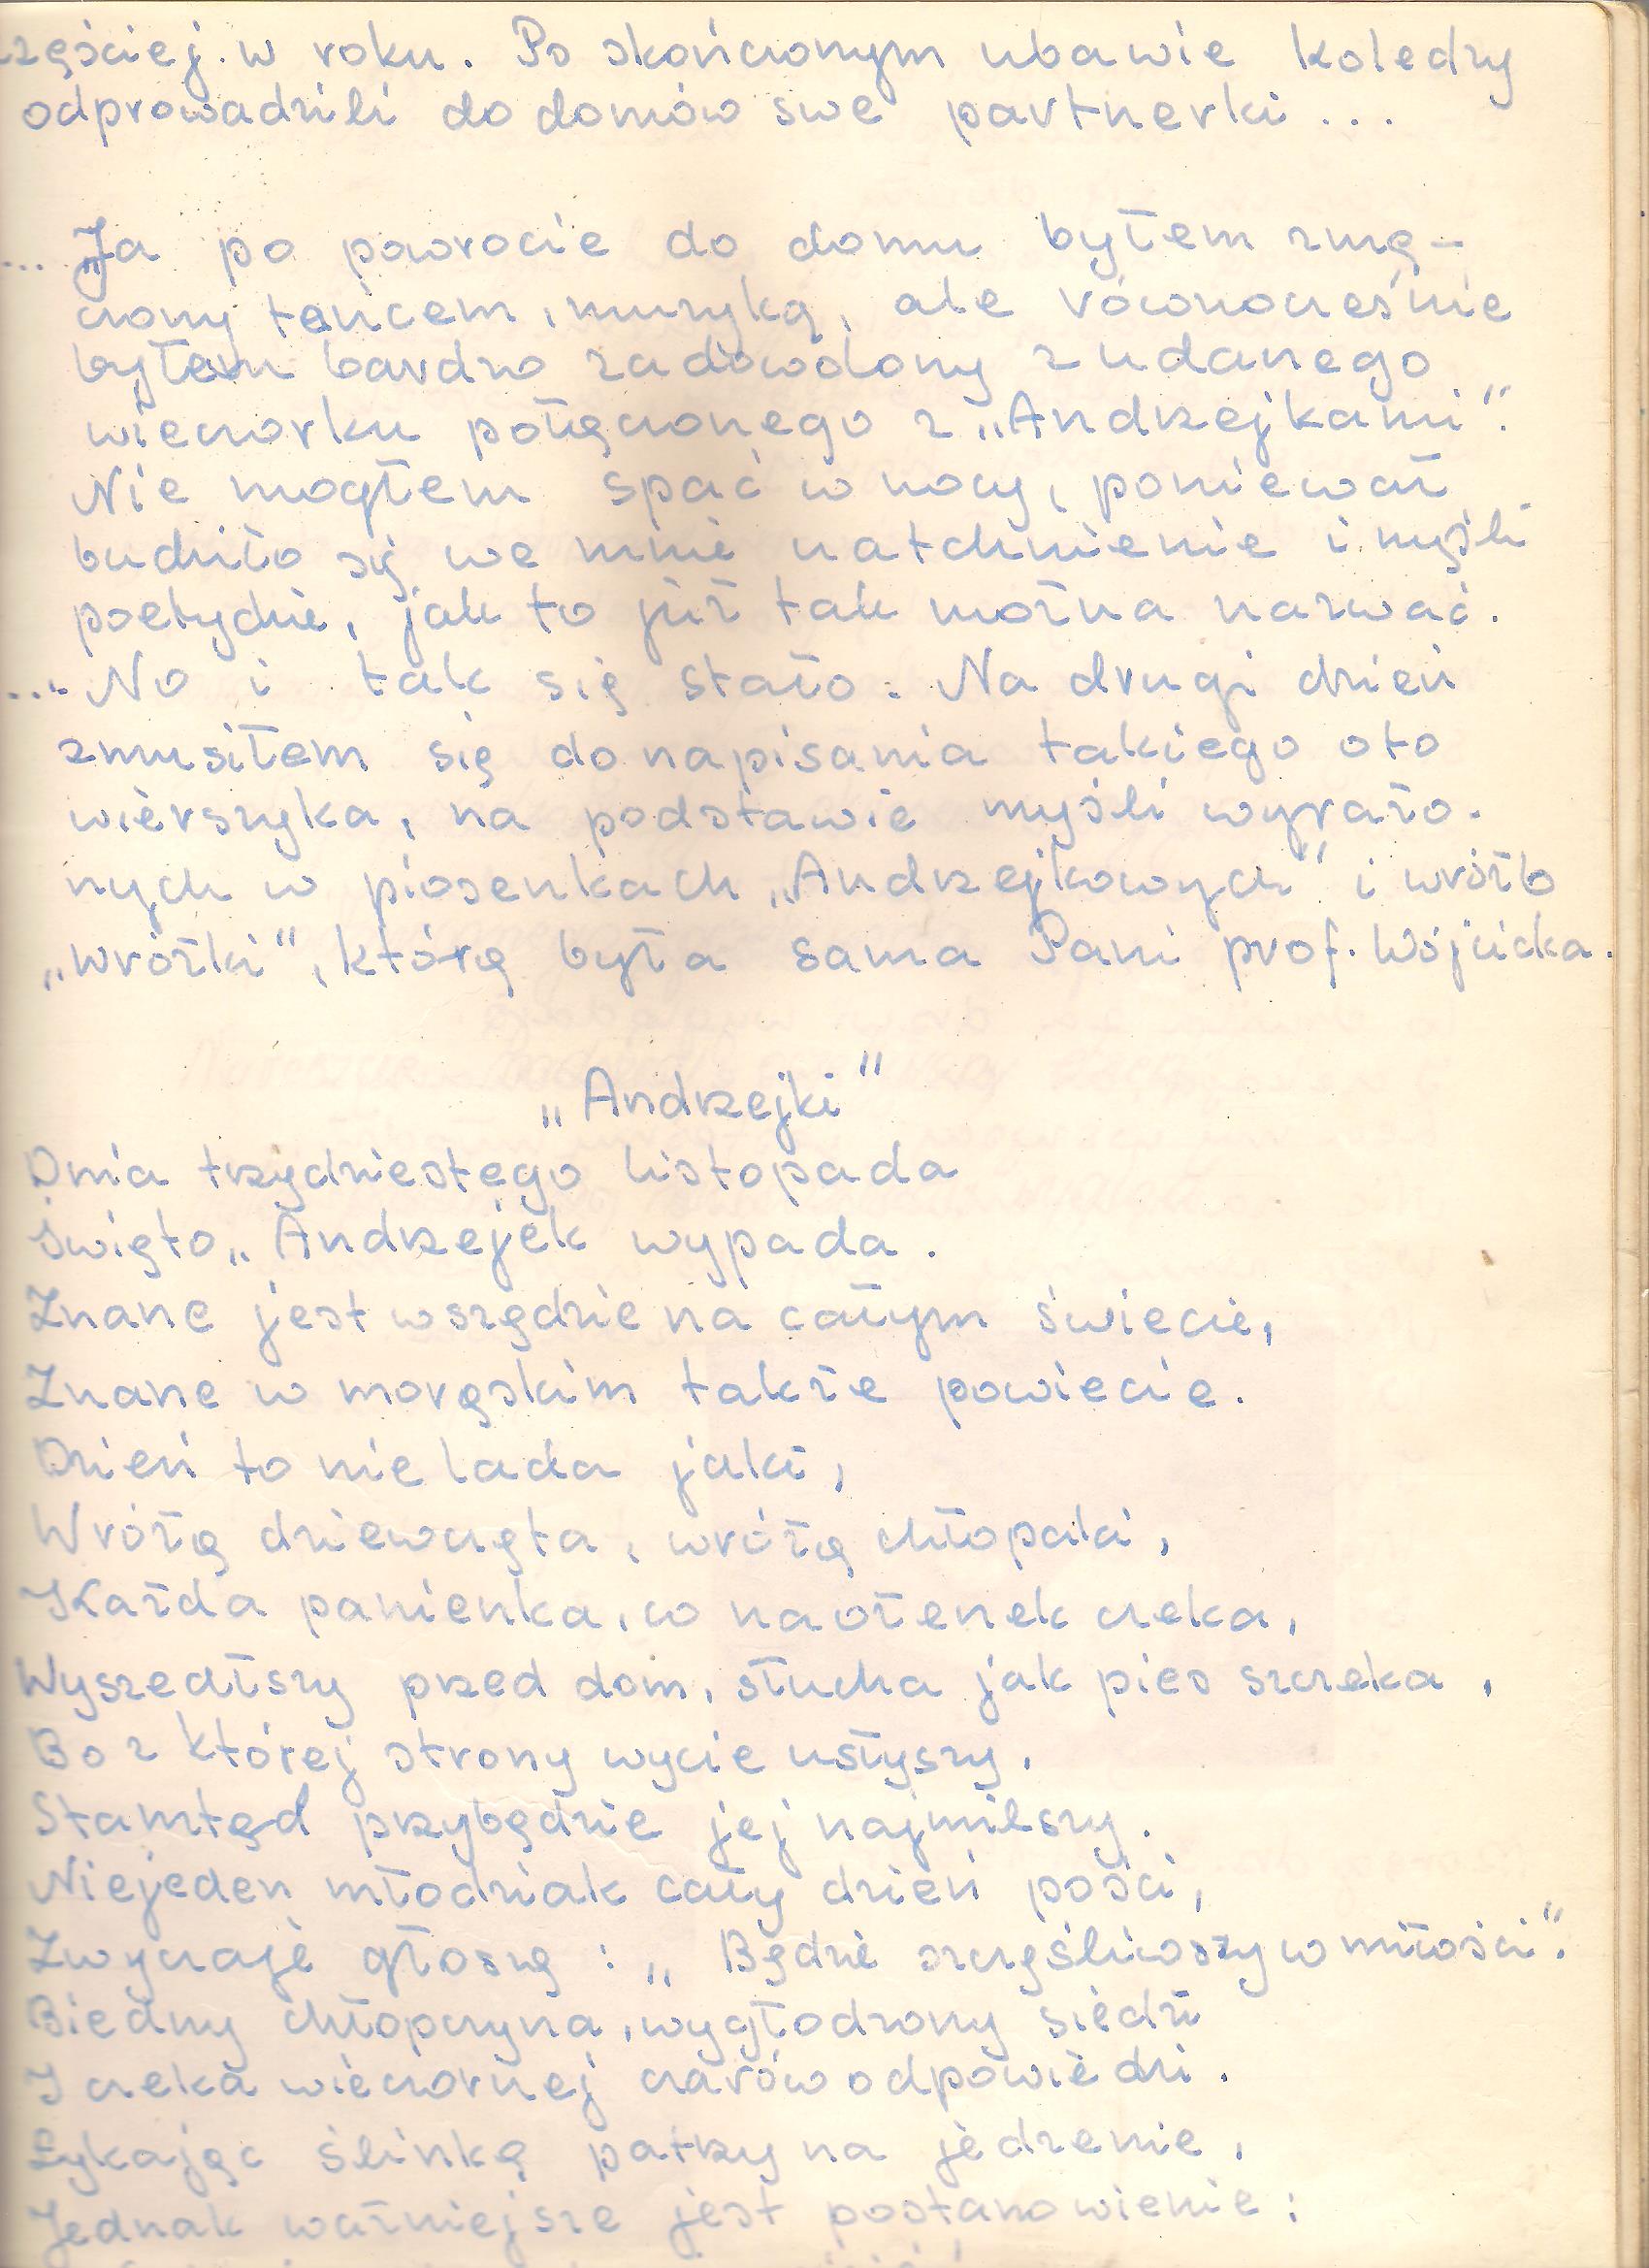 częściej w roku. Po skończonym ubawie koledzy
odprowadzili do domów swe partnerki ...
... „Ja po powrocie do domu byłem zmę-
czony tańcem, muzyką, ale równocześnie
byłem bardzo zadowolony z udanego
wieczorku połączonego z „Andrzejkami”.
Nie mogłem spać w nocy, ponieważ
budziło się we mnie natchnienie i myśli
poetyckie, jak to już tak można nazwać.
... No i tak się stało. Na drugi dzień
zmusiłem się do napisania takiego oto
wierszyka, na podstawie myśli wyrażo-
nych w piosenkach „Andrzejkowych” i wróżb
„wróżki”, którą była sama Pani prof. Wójcicka.
„Andrzejki”
Dnia trzydziestego listopada
Święto „Andrzejek wypada.
Znane jest wszędzie na całym świecie,
Znane w morąskim także powiecie.
Dzień to nie lada jaki,
Wróżą dziewczęta, wróżą chłopaki,
Każda panienka, co na ożenek czeka,
Wyszedłszy przed dom, słucha jak pies szczeka,
Bo z której strony wycie usłyszy,
Stamtąd przybędzie jej najmilszy.
Niejeden młodziak cały dzień pości,
Zwyczaje głoszą : „ Będzie szczęśliwszy w miłości”.
Biedny chłopczyna, wygłodzony siedzi
I czeka wieczornej czarów odpowiedzi.
Łykając ślinkę patrzy na jedzenie,
Jednak ważniejsze jest postanowienie :